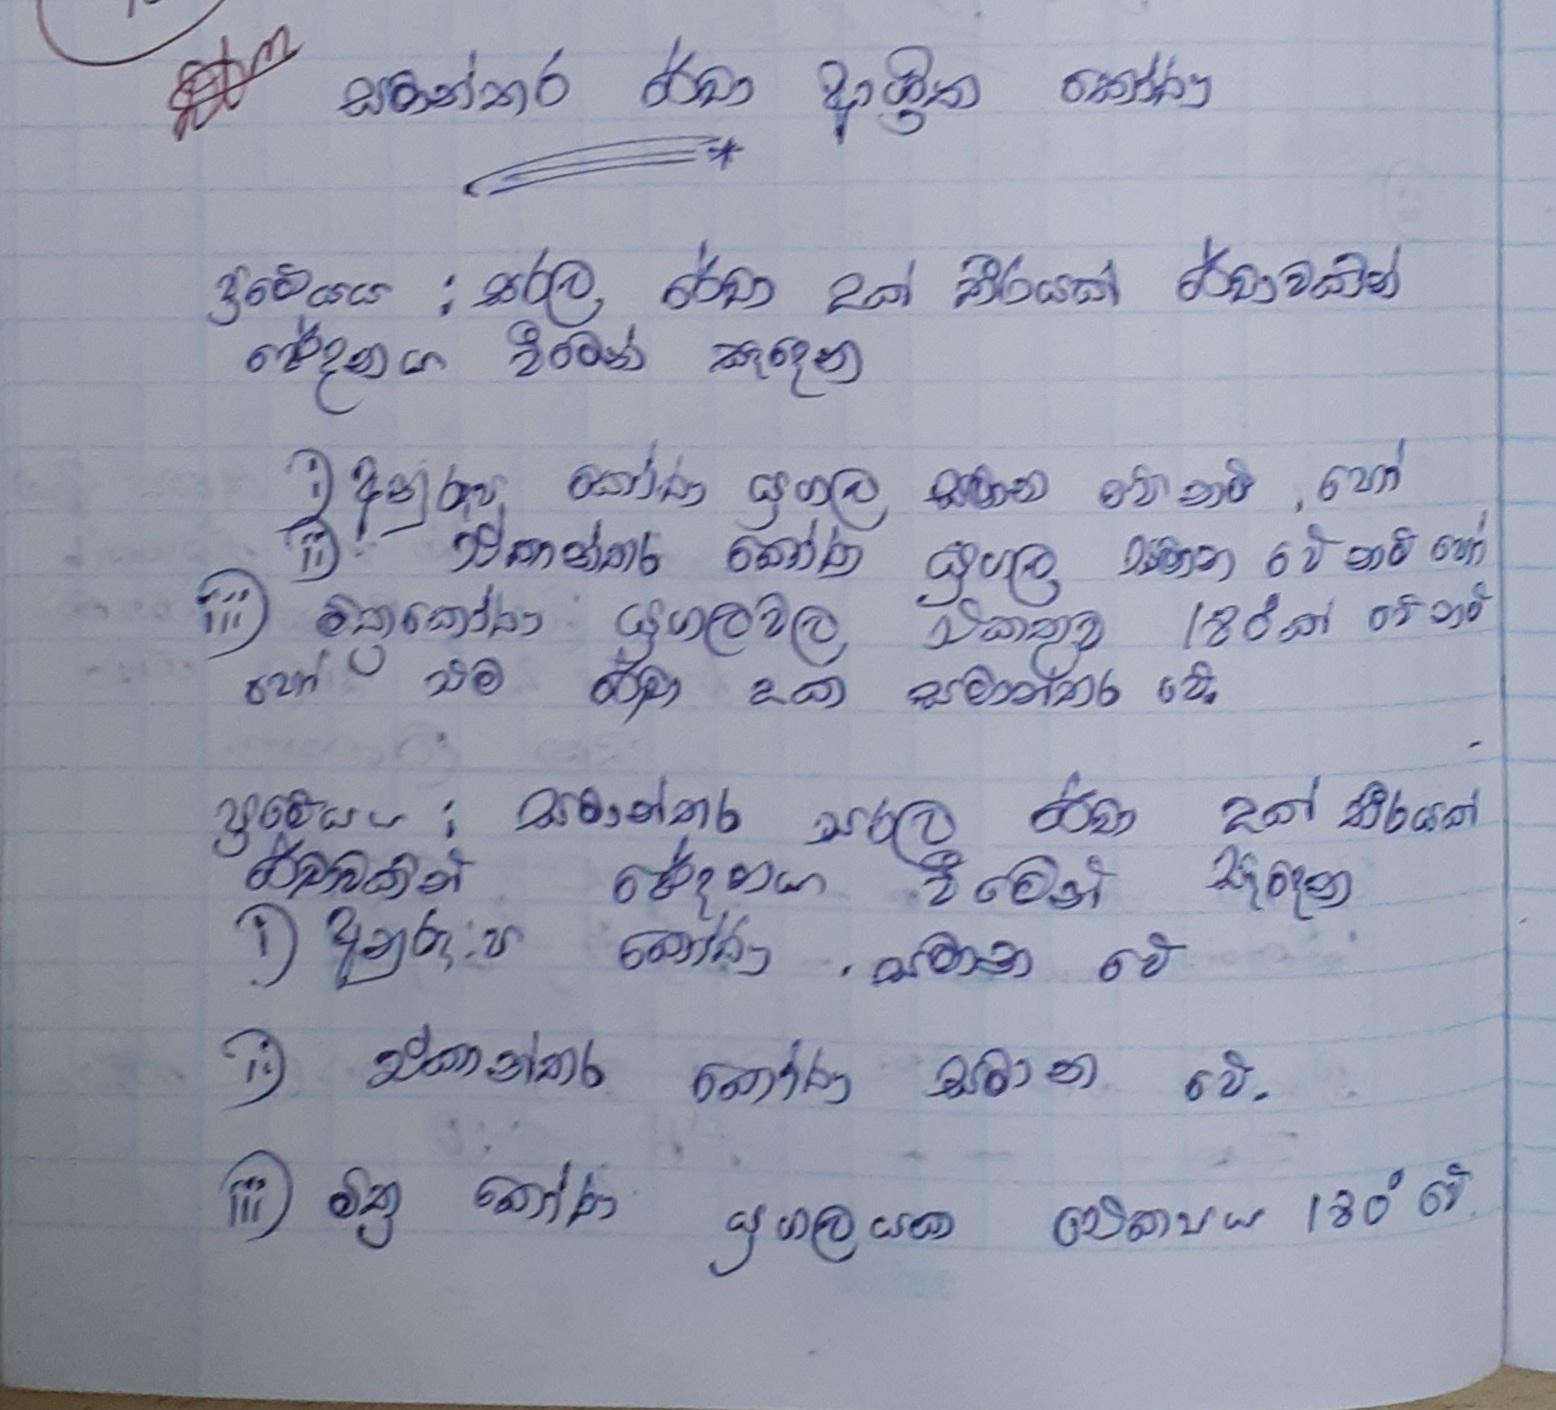 සමාන්තර රේඛා ආශ්‍රිත කෝණ
ප්‍රමේයය : සරල රේඛා දෙක් තීරයක් රේඛාවකින්
ඡේදනය වීමෙන් සෑදෙන
i) අනුරූප කෝණ යුගල සමාන වේ නම්, හෝ
ii) ඒකාන්තර කෝණ යුගල සමාන වේ නම් හෝ
iii) මිත්‍රකෝණ යුගලවල එකතුව 180°ක් වේ නම්
හෝ එම රේඛා දෙක සමාන්තර වේ.
ප්‍රමේයය : සමාන්තර සරල රේඛා දෙක් තීරයක්
රේඛාවකින් ඡේදනය වීමෙන් සෑදෙන
i) අනුරූප කෝණ සමාන වේ
ii) ඒකාන්තර කෝණ සමාන වේ.
iii) මිත්‍ර කෝණ යුගලයක ඓක්‍යය 180° වේ.